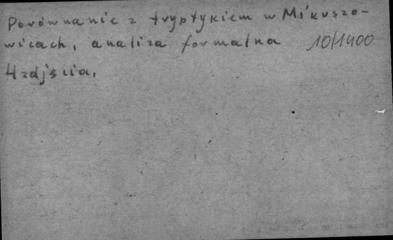 Porównanie z tryptykiem w Mikuszo-
wicach, analiza formalna 10/1400
4 zdjęcia.